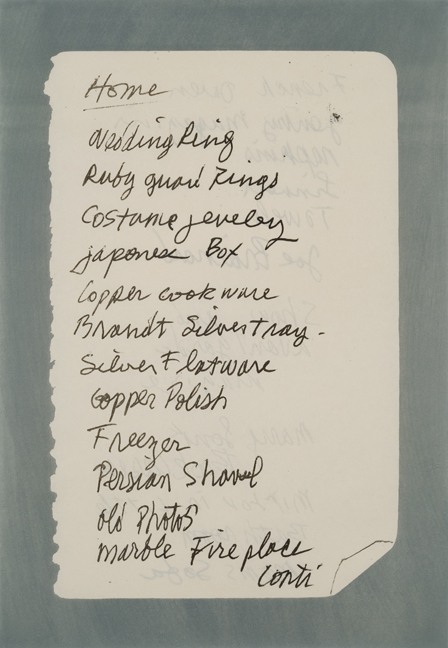 Home
Wedding Ring
Ruby guard Rings
Costume jewelry
japonese Box
Copper cookware
Brandt Silver tray -
Silver Flatware
Copper Polish
Freezer
Persian Shawl
old Photos
marble Fireplace
conti